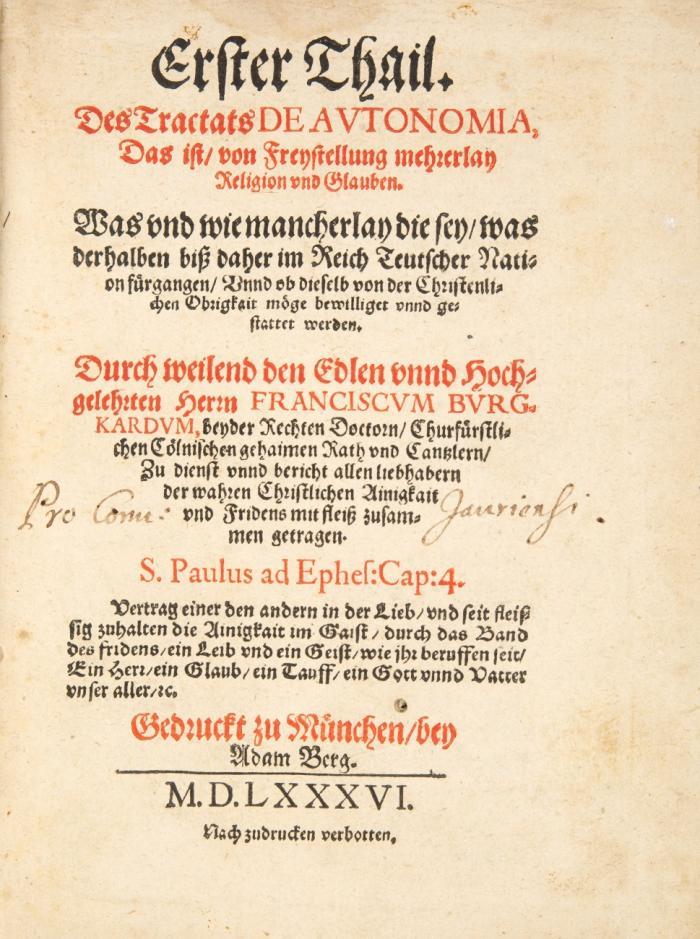 Erſter Thail.
Des Tractats DE AVTONOMIA,
Das iſt/ von Freyſtellung mehrerlay
Religion vnd Glauben.
Was vnd wie mancherlay die ſey/ was
derhalben biß daher im Reich Teutſcher Nati⸗
on fürgangen/ Vnnd ob dieſelb von der Chriſtenli⸗
chen Obrigkait möge bewilliget vnnd ge⸗
ſtattet werden.
Durch weilend den Edlen vnnd Hoch⸗
gelehrten Herrn FRANCISCVM BVRG⸗
KARDVM, beyder Rechten Doctorn/ Churfürſtli⸗
chen Cölniſchen gehaimen Rath vnd Cantzlern/
Zu dienſt vnnd bericht allen liebhabern
der wahren Chriſtlichen Ainigkait
Pro Conu: vnd Fridens mit fleiß zuſam⸗ Jauriensi.
men getragen.
S. Paulus ad Epheſ: Cap: 4.
Vertrag einer den andern in der Lieb/ vnd ſeit fleiß
ſig zuhalten die Ainigkait im Gaiſt/ durch das Band
des fridens/ ein Leib vnd ein Geiſt/ wie jhr beruffen ſeit/
Ein Herr/ ein Glaub/ ein Tauff/ ein Gott vnnd Vatter
vnſer aller/ ꝛc.
Gedruckt zu München/ bey
Adam Berg.
M.D.LXXXVI.
Nach zudrucken verbotten.